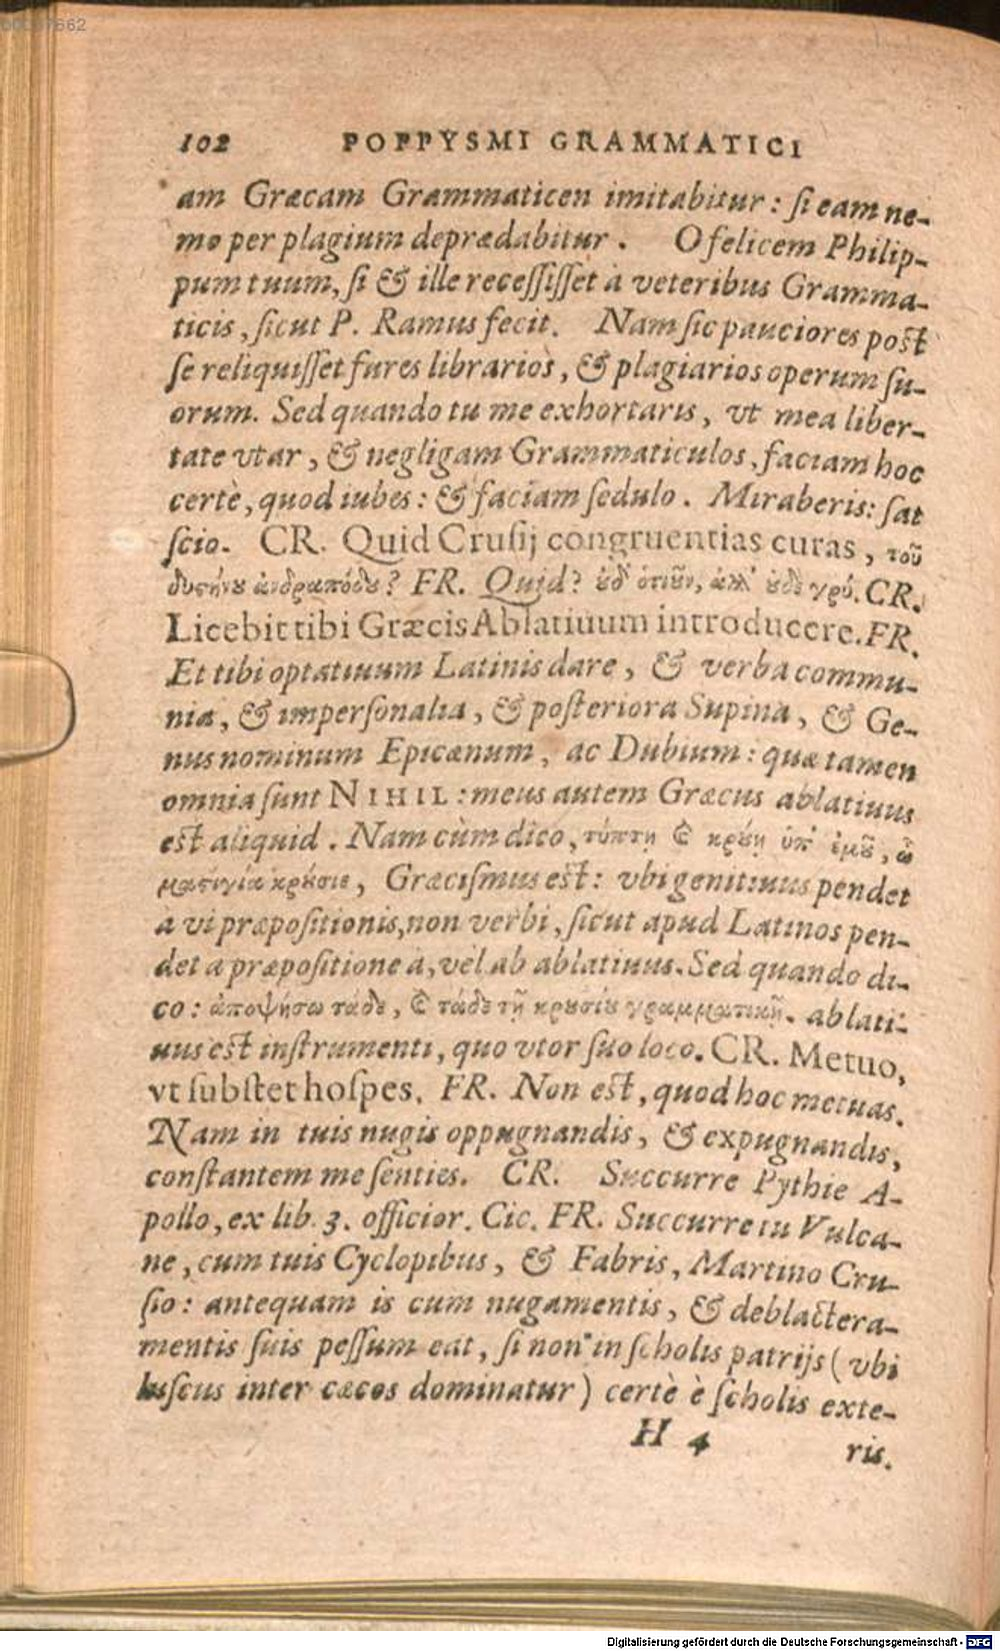 00037662
102 POPPYSMI GRAMMATICI
am Græcam Grammaticen imitabitur: ſi eam ne-
mo per plagium deprædabitur. O felicem Philip-
pum tuum, ſi & ille receſſiſſet à veteribus Gramma-
ticis, ſicut P. Ramus fecit. Nam ſic pauciores poſt
ſe reliquiſſet fures librarios, & plagiarios operum ſu-
orum. Sed quando tu me exhortaris, vt mea liber-
tate vtar, & negligam Grammaticulos, faciam hoc
certè, quod iubes: & faciam ſedulo. Miraberis: ſat
ſcio. CR. Quid Cruſij congruentias curas, τοῦ
δυστήνου ἀνδραπόδου? FR. Quid? οὐδ' ὁτιοῦν, ἀλλ' οὐδὲ γρύ. CR.
Licebit tibi Græcis Ablatiuum introducere. FR.
Et tibi optatiuum Latinis dare, & verba commu-
nia, & imperſonalia, & poſteriora Supina, & Ge-
nus nominum Epicænum, ac Dubium: quæ tamen
omnia ſunt NIHIL: meus autem Græcus ablatiuus
eſt aliquid. Nam cùm dico, τύπτῃ καὶ κρούῃ ὑπ' ἐμοῦ, ὦ
μαστιγία κρούσιε, Græciſmus eſt: vbi genitiuus pendet
a vi præpoſitionis, non verbi, ſicut apud Latinos pen-
det a præpoſitione à, vel ab ablatiuus. Sed quando di-
co: ἀποψήσω τάδε, καὶ τάδε τῇ κρουσίου γραμματικῇ. ablati-
uus eſt inſtrumenti, quo vtor ſuo loco. CR. Metuo,
vt ſubſtet hoſpes. FR. Non eſt, quod hoc metuas.
Nam in tuis nugis oppugnandis, & expugnandis,
conſtantem me ſenties. CR. Succurre Pythie A-
pollo, ex lib. 3. officior. Cic. FR. Succurre tu Vulca-
ne, cum tuis Cyclopibus, & Fabris, Martino Cru-
ſio: antequam is cum nugamentis, & deblactera-
mentis ſuis peſſum eat, ſi non in ſcholis patrijs (vbi
luſcus inter cæcos dominatur) certè è ſcholis exte-
H 4 ris.
Digitalisierung gefördert durch die Deutsche Forschungsgemeinschaft - DFG